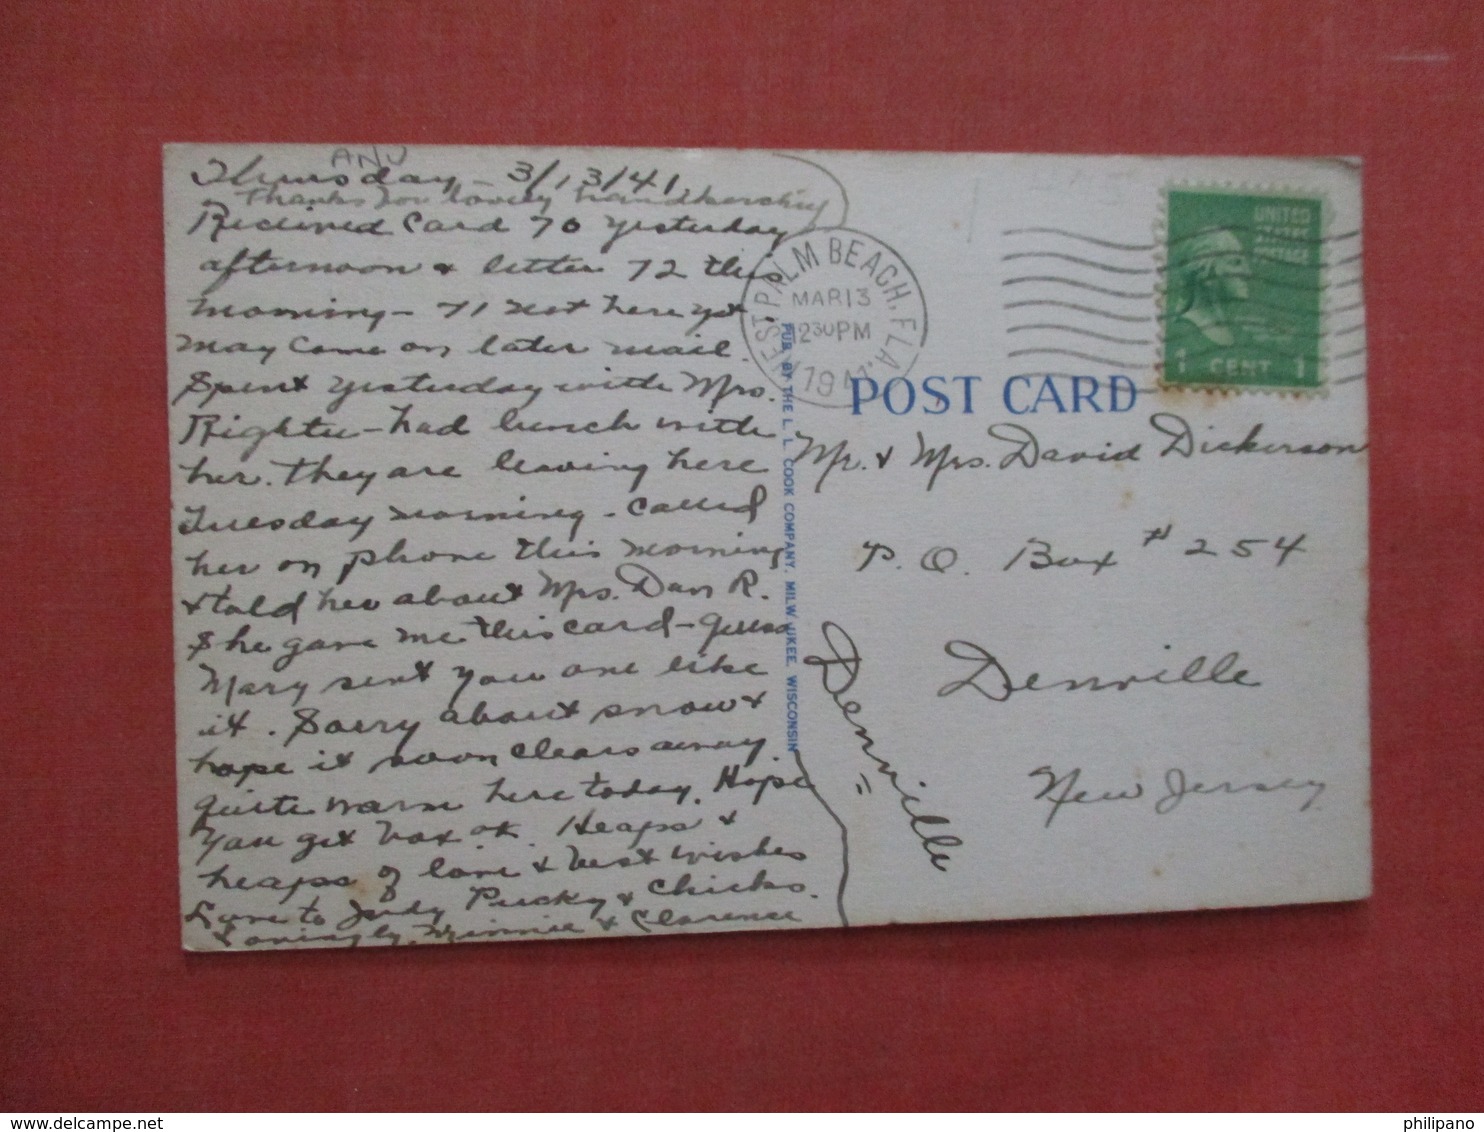 ANU
Thursday - 3/13/41
Thanks for lovely handkerchief
Received Card 70 yesterday
afternoon & letter 72 this
morning - 71 not here yet
may come on later mail.
Spent yesterday with Mrs.
Righter - had lunch with
her. They are leaving here
Tuesday morning - called
her on phone this morning
& told her about Mrs. Dan R.
She gave me this card - guess
Mary sent you one like
it. Sorry about snow &
hope it soon clears away
quite warm here today. Hope
you get box ok. Heaps &
heaps of love & best wishes
Love to Judy Pucky & chicks.
Lovingly, Minnie & Clarence
PUB. BY THE L. L. COOK COMPANY, MILWAUKEE, WISCONSIN
WEST PALM BEACH, FLA.
MAR 13
12 30 PM
1941
UNITED
STATES
POSTAGE
1 CENT 1
POST CARD
Mr. & Mrs. David Dickerson
P. O. Box # 254
Denville
New Jersey
Denville
philipano